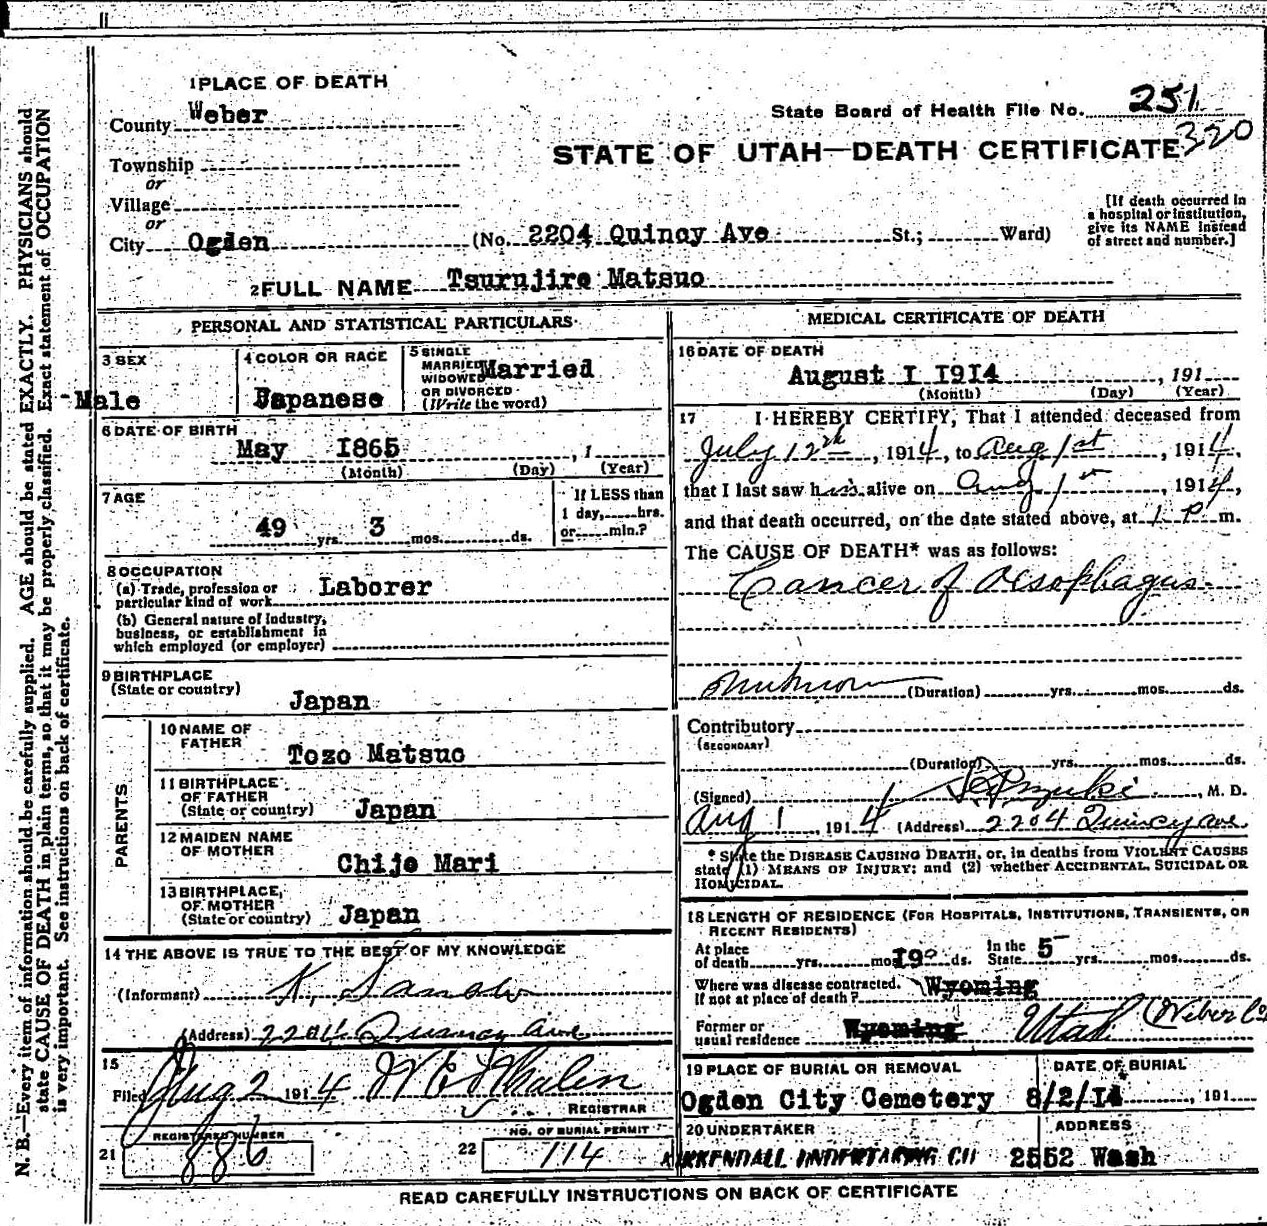 1 PLACE OF DEATH
County Weber
State Board of Health File No. 251
320
STATE OF UTAH—DEATH CERTIFICATE
Township
or
Village
or
City Ogden (No. 2204 Quincy Ave St.; Ward)
[If death occurred in
a hospital or institution,
give its NAME instead
of street and number.]
2 FULL NAME Tsurujiro Matsuo
PERSONAL AND STATISTICAL PARTICULARS
3 SEX
Male
4 COLOR OR RACE
Japanese
5 SINGLE
MARRIED
WIDOWED
OR DIVORCED
(Write the word)
Married
6 DATE OF BIRTH
May 1865 , 1
(Month) (Day) (Year)
7 AGE
49 yrs. 3 mos. ds.
If LESS than
1 day, hrs.
or min.?
8 OCCUPATION
(a) Trade, profession or
particular kind of work
Laborer
(b) General nature of industry,
business, or establishment in
which employed (or employer)
9 BIRTHPLACE
(State or country)
Japan
PARENTS
10 NAME OF
FATHER
Tozo Matsuo
11 BIRTHPLACE
OF FATHER
(State or country)
Japan
12 MAIDEN NAME
OF MOTHER
Chijo Mari
13 BIRTHPLACE
OF MOTHER
(State or country)
Japan
14 THE ABOVE IS TRUE TO THE BEST OF MY KNOWLEDGE
(Informant) K.
(Address) 2204 Quincy Ave
15
Filed Aug 2 1914 Whalen
REGISTRAR
REGISTERED NUMBER
21 886
NO. OF BURIAL PERMIT
22 114
MEDICAL CERTIFICATE OF DEATH
16 DATE OF DEATH
August I I9I4 , 191
(Month) (Day) (Year)
17 I HEREBY CERTIFY, That I attended deceased from
July 12th , 1914, to Aug 1st , 1914,
that I last saw his alive on Aug 1st , 1914,
and that death occurred, on the date stated above, at 1 P m.
The CAUSE OF DEATH* was as follows:
Cancer of Oesophagus
unknown (Duration) yrs. mos. ds.
Contributory
(SECONDARY)
(Duration) yrs. mos. ds.
(Signed) , M. D.
Aug 1 , 1914 (Address) 2204 Quincy Ave
* State the DISEASE CAUSING DEATH, or, in deaths from VIOLENT CAUSES
state (1) MEANS OF INJURY; and (2) whether ACCIDENTAL, SUICIDAL OR
HOMICIDAL.
18 LENGTH OF RESIDENCE (FOR HOSPITALS, INSTITUTIONS, TRANSIENTS, OR
RECENT RESIDENTS)
At place
of death yrs. mos. 19 ds.
In the
State 5 yrs. mos. ds.
Where was disease contracted.
if not at place of death?
Wyoming
Former or
usual residence
Wyoming Utah (Weber Co
19 PLACE OF BURIAL OR REMOVAL
Ogden City Cemetery
DATE OF BURIAL
8/2/14 , 191
20 UNDERTAKER
KIRKENDALL UNDERTAKING CO
ADDRESS
2552 Wash
READ CAREFULLY INSTRUCTIONS ON BACK OF CERTIFICATE
N. B.—Every item of information should be carefully supplied. AGE should be stated EXACTLY. PHYSICIANS should
state CAUSE OF DEATH in plain terms, so that it may be properly classified. Exact statement of OCCUPATION
is very important. See instructions on back of certificate.